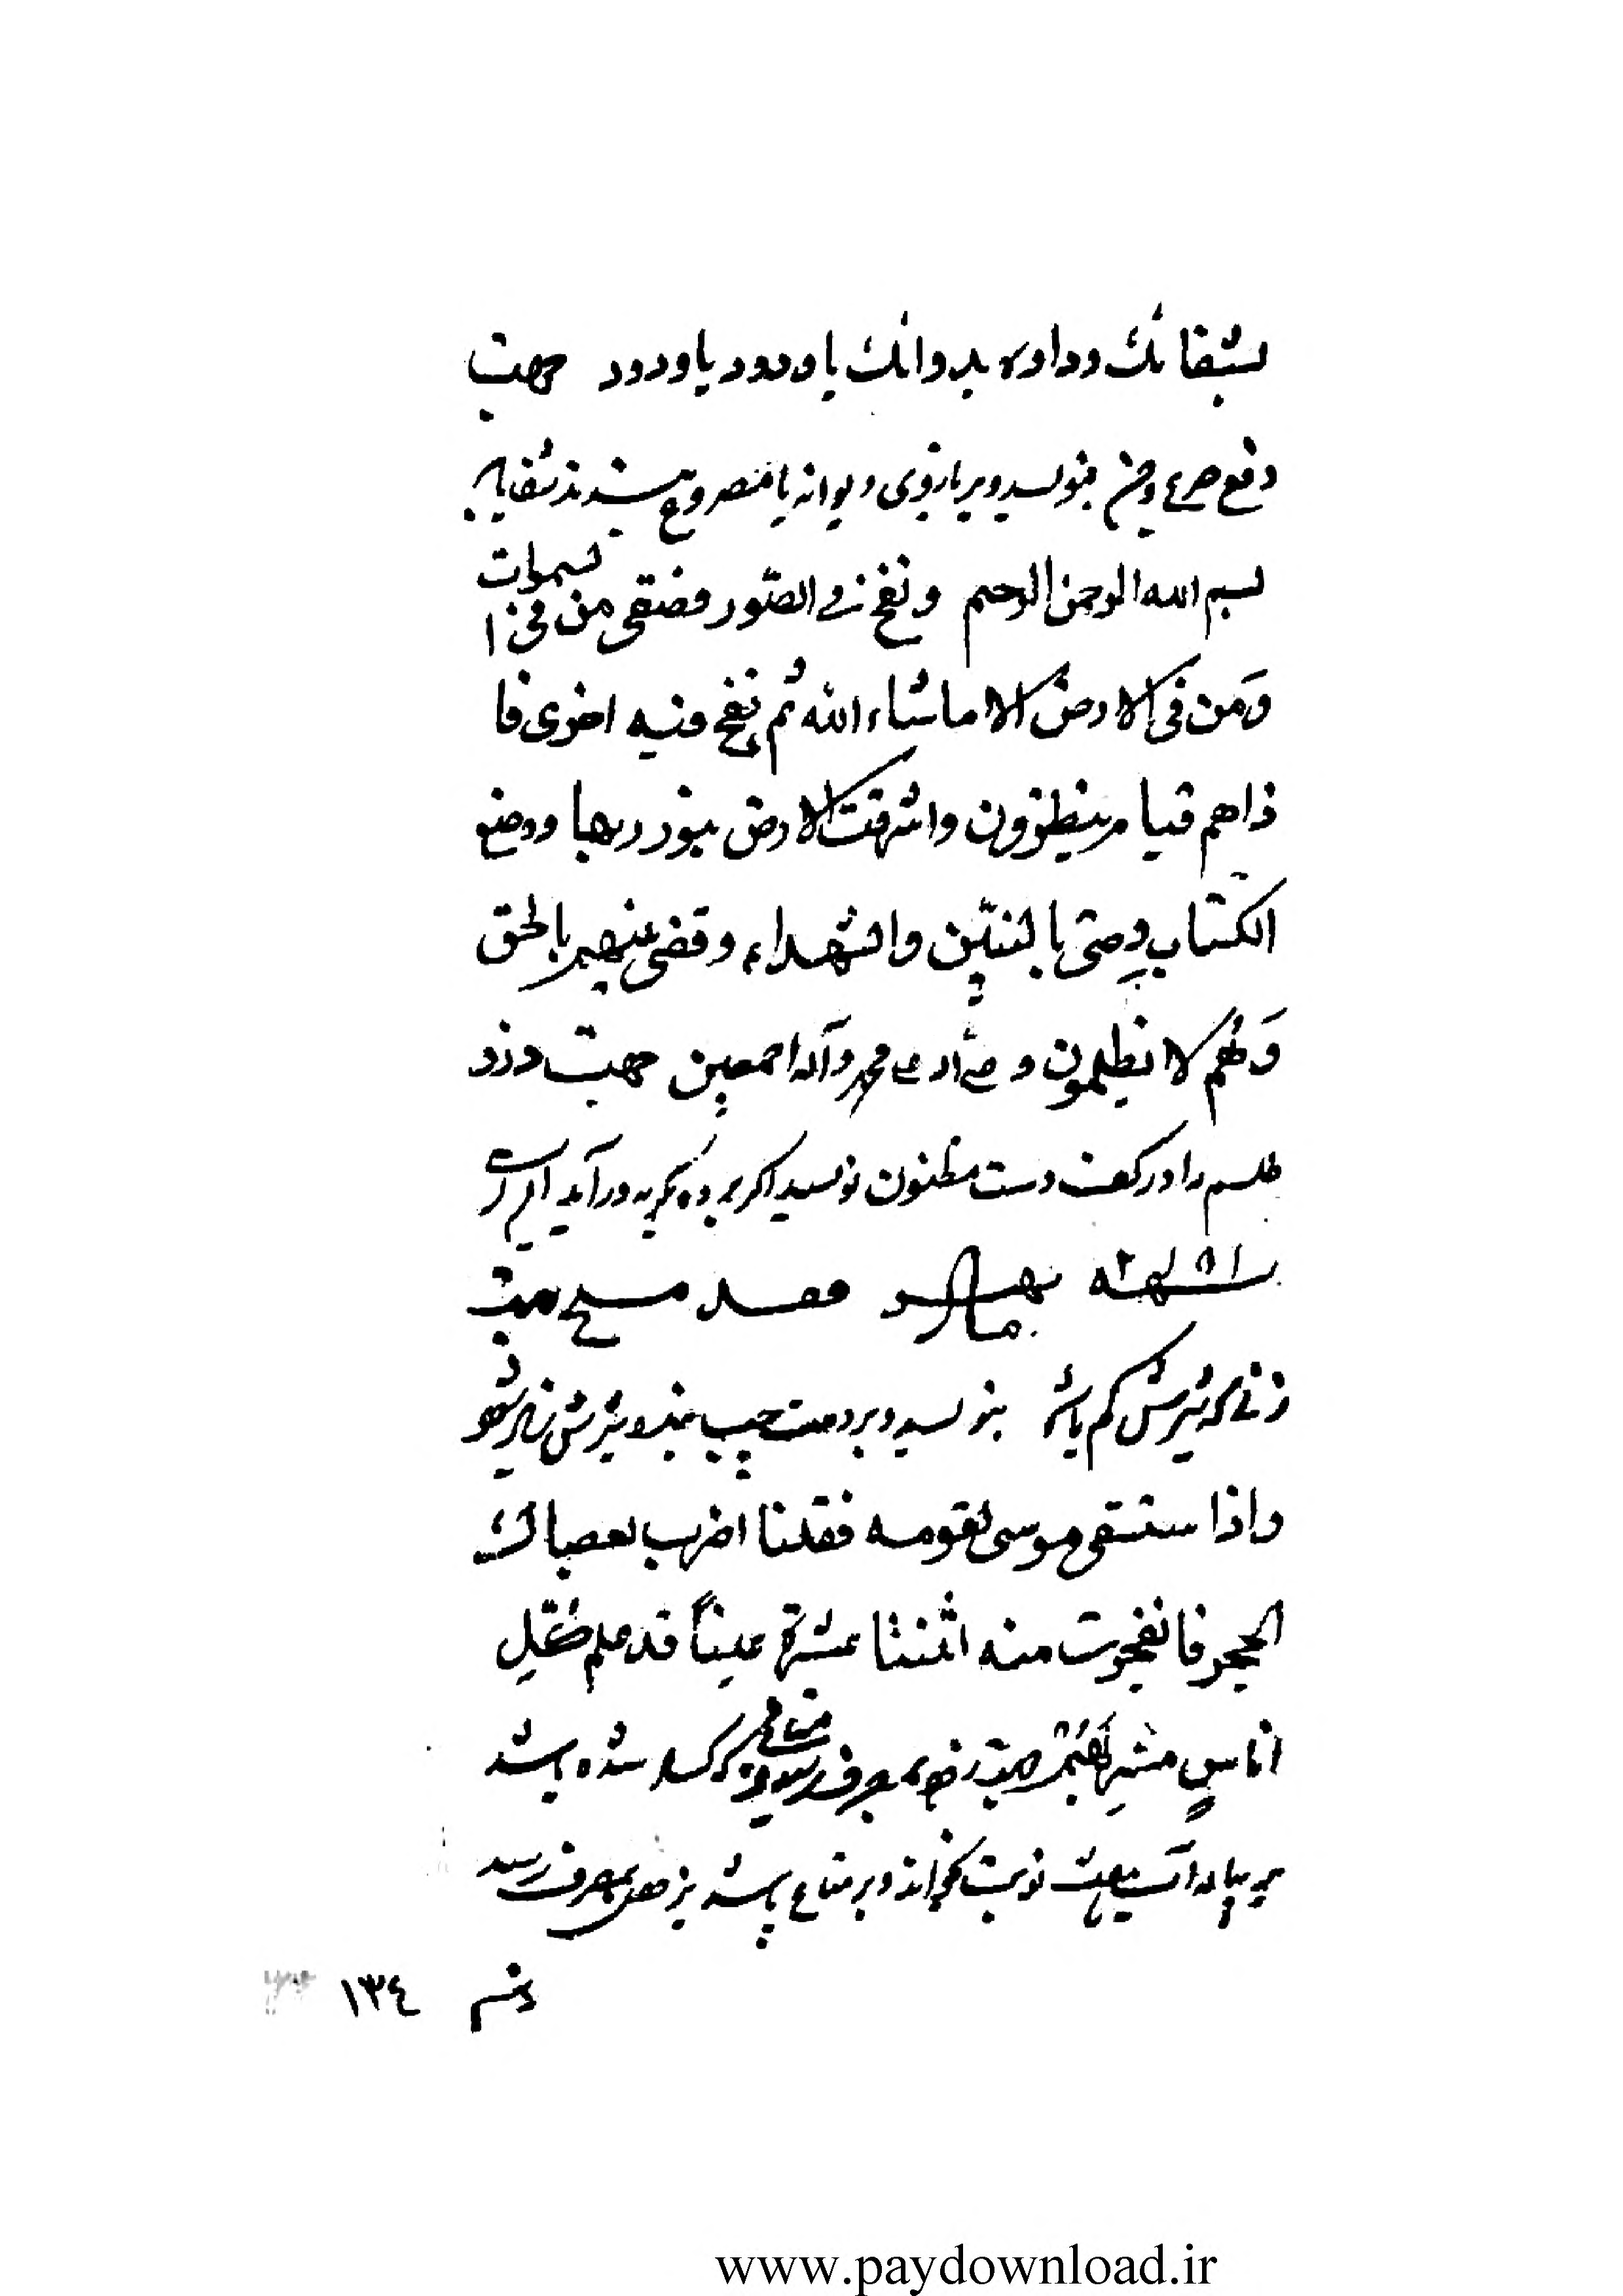 بشفائك و داوه بدوائك یا ودود یا ودود جهت
دفع صرع و جن بنویسد و بر بازوی دیوانه یا مصروع بندند شفا یابد
بسم الله الرحمن الرحیم و نفخ فی الصّور فصعقى من فی السموات
وَمن فی الارض الا ما شاء الله ثم نفخ فیه اخری فا
ذاهم قیام ینظرون و اشرقت الارض بنور ربها و وضع
الکتاب وجئ بالنبیّین والشهداء وقضی بینهم بالحق
وَهُم لا یظلمون و صلی الله علی محمد وآله اجمعین جهت دزد
طلسم را در کف دست مظنون نویسد اگر برده بگریه درآید
مسیح جهت
زنی که شیرش کم باشد بنویسد و بر دست چپ بندد شیرش زیاد شود
واذا ستسقى موسى لقومه فقلنا اضرب بعصاك
الحجر فانفجرت منه اثنتا عشرة عیناً قد علم کُلِ
اناسٍ مشربهم متاعی که کساد شده باشد
بر آب هفت نوبت بخواند و بر متاع پاشد بزودی بمصرف رسد
١٣٤
www.paydownload.ir